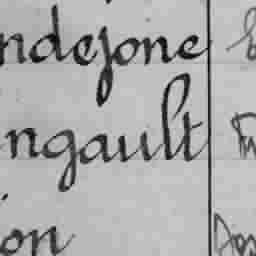 ndejone
ngault
on